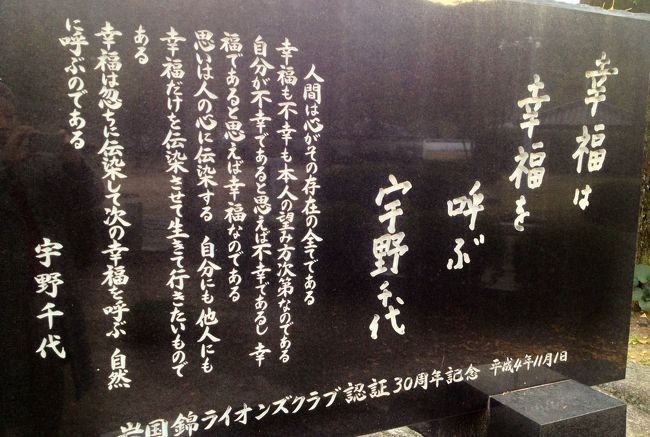 幸福は
幸福を
呼ぶ
宇野千代
人間は心がその存在の全てである
幸福も不幸も本人の望み方次第なのである
自分が不幸であると思えば不幸であるし 幸
福であると思えば幸福なのである
思いは人の心に伝染する 自分にも他人にも
幸福だけを伝染させて生きて行きたいもので
ある
幸福は忽ちに伝染して次の幸福を呼ぶ 自然
に呼ぶのである
宇野千代
岩国錦ライオンズクラブ認証30周年記念 平成4年11月1日